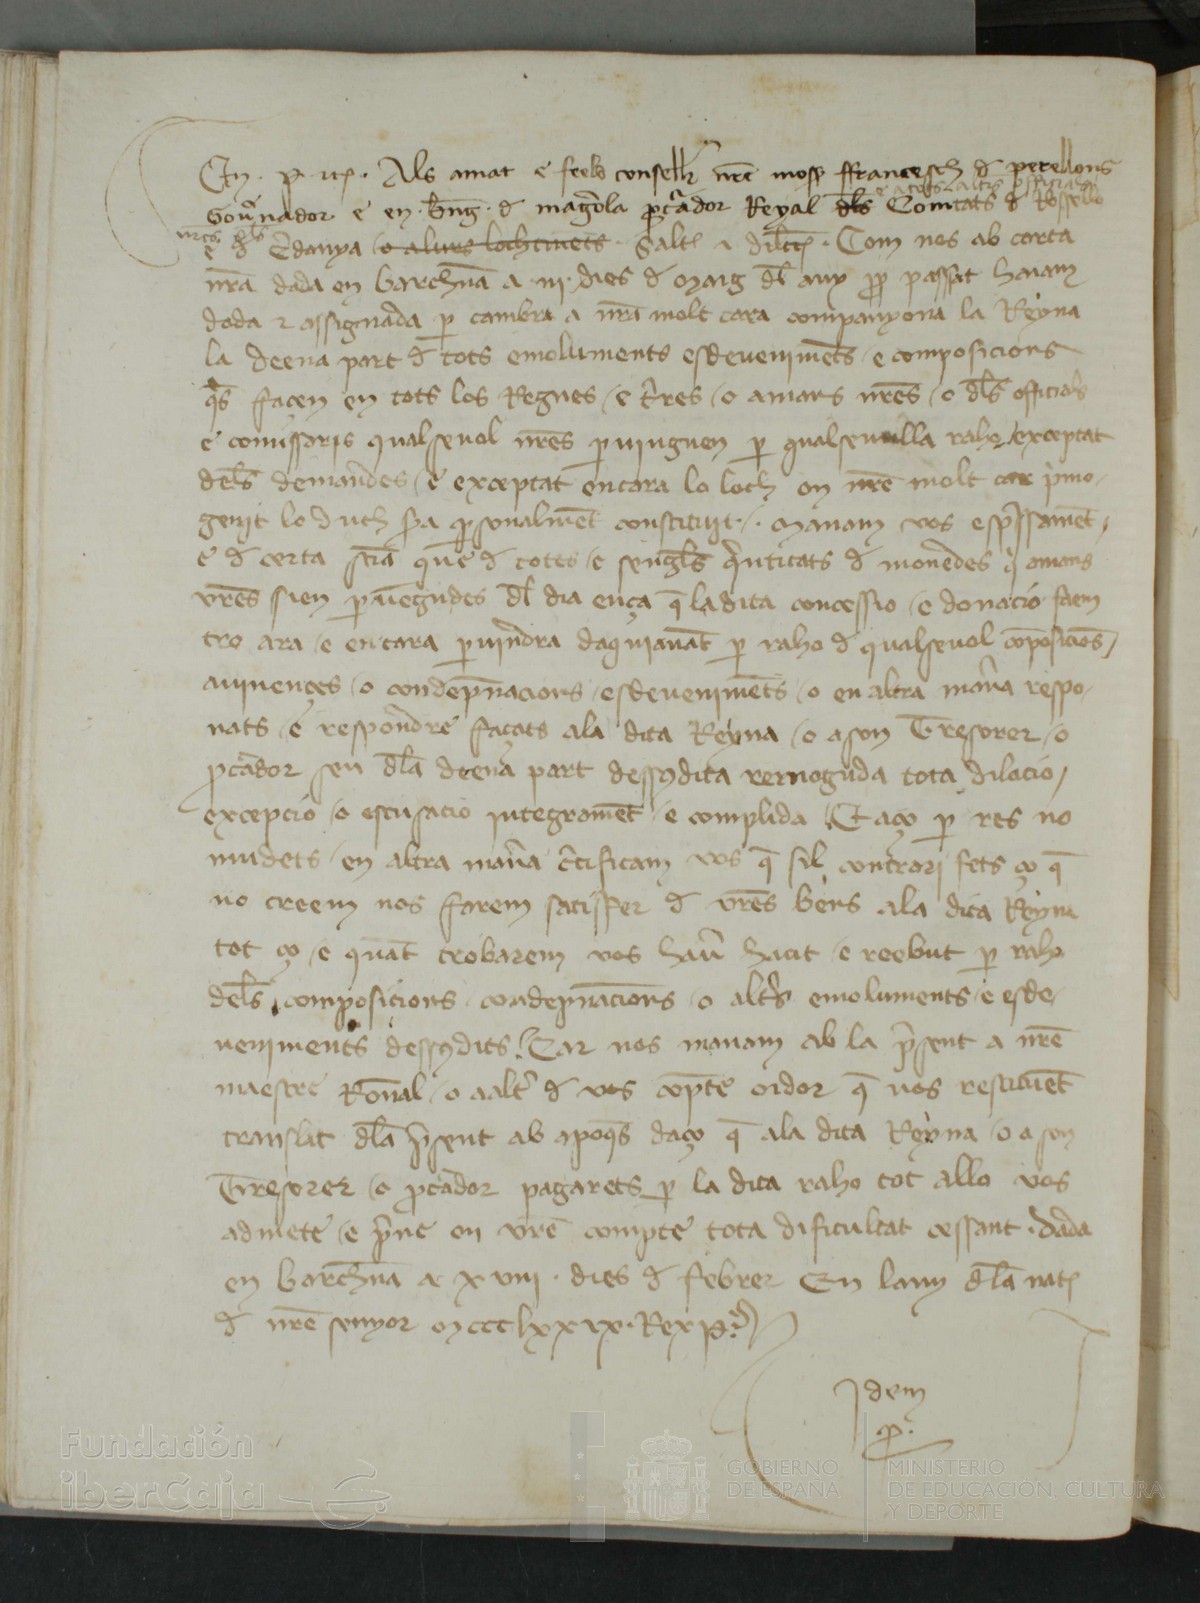 En · P · etc̄ · Als amat e feels consellr̄ nr̄e moss̄ ffrancesch d̄ perellons
e a tots altrs officials
Gou̅nador · e en · bn̄g · d̄ magrola p̱cr̄ador Reyal dl̄s Comtats d̄ Rossello
nr̄es dl̄s
e d̄ C̄danya o alurs lochtinēts · Salt̄ z dilcc̄o · Com nos ab carta
nr̄a dada en barchn̄a a · iii · dies d̄ Marg dl̄ any p̱p̱ passat haiam
dada z assignada p̱ cambra a nr̄a molt cara companyona la Reyna
la deena part d̄ tots emoluments esdevenimēts e composicions
qs̄ façen en tots los Regnes / e tr̄res / o amans nr̄es / o dl̄s officials
e comissaris qualsevol nr̄es p̱vinguen p̱ qualsevulla raho / exceptat
del̄s demandes / e exceptat encara lo loch on nr̄e molt car p̄mo-
genit lo duch sia p̱sonalmēt constituit · / · Manam vos exp̄ssamēt /
e d̄ certa sciā que d̄ totes / e sengl̄s quātitats d̄ monedes q̄ amans
vr̄es sien p̱vēgudes dl̄ dia ença q̄ la dita concessio / e donacio faem
tro ara / e encara p̱vindra daquiavāt p̱ raho d̄ qualsevol cōposicions /
avinençes / o condepn̄acions / esdevenimēts / o en altra man̄a respo-
nats / e respondre façats ala dita Reyna / o a son Tresorer / o
p̱cr̄ador seu dl̄a deena part dessusdita remoguda tota dilacio /
excepcio / o escusacio integramēt / e complida / E aço p̱ res no
mudets / en altra man̄a c̄tificam vos q̄ sil contrari fets ço q̄
no creem nos farem satisfer d̄ vr̄es bens ala dita Reyna
tot ço / e quāt trobarem vos hau̅ haut / e reebut p̱ raho
del̄s composicions / condepn̄acions / o altr̄s emoluments / e esde-
veniments dessusdits / Car nos manam ab la p̄sent a nr̄e
maestre Ron̄al / o a altr̄ d̄ vos cōpte oidor q̄ vos restituēt
translat dl̄a p̄sent ab apoq̄s daço q̄ ala dita Reyna / o a son
Tresorer / o p̱cr̄ador pagarets p̱ la dita raho tot allo vos
admete / e p̄ne en vr̄e compte tota dificultat cessant · Dada
en barchn̄a a xviii · dies d̄ febrer En lany dl̄a nat̄
d̄ nr̄e senyor Mccclxxix · Rex P ·
Idem
P ·
Fundación
iberCaja
GOBIERNO
DE ESPAÑA
MINISTERIO
DE EDUCACIÓN, CULTURA
Y DEPORTE